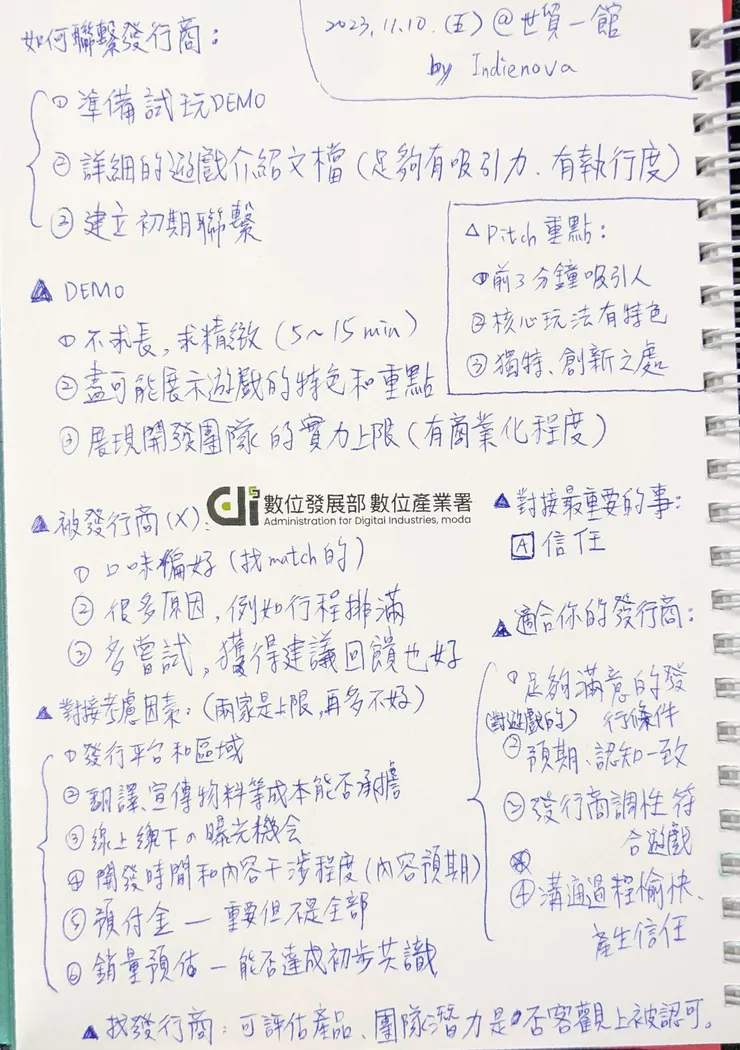 2023.11.10.(五)@世貿一館
by Indienova
如何聯繫發行商：
① 準備試玩DEMO
② 詳細的遊戲介紹文檔(足夠有吸引力、有執行度)
③ 建立初期聯繫
△ Pitch 重點：
① 前3分鐘吸引人
② 核心玩法有特色
③ 獨特、創新之處
▲ DEMO
① 不求長，求精緻(5~15min)
② 盡可能展示游戲的特色和重點
③ 展現開發團隊的實力上限(有商業化程度)
數位發展部 數位產業署
Administration for Digital Industries, moda
▲ 被發行商(X)：
① 口味偏好(找match的)
② 很多原因，例如行程排滿
③ 多嘗試，獲得建議回饋也好
▲ 對接最重要的事：
A 信任
▲ 對接考慮因素：(兩家是上限，再多不好)
① 發行平台和區域
② 翻譯、宣傳物料等成本能否承擔
③ 線上線下の曝光機会
④ 開發時間和內容干涉程度(內容預期)
⑤ 預付金 — 重要但不是全部
⑥ 銷量預估 — 能否達成初步共識
▲ 適合你的發行商：
① 足夠滿意的發
行條件
(對遊戲的)
② 預期、認知一致
③ 發行商調性符
合遊戲
④ 溝通過程愉快、
產生信任
▲ 找發行商：可評估產品、團隊潛力是否客觀上被認可。